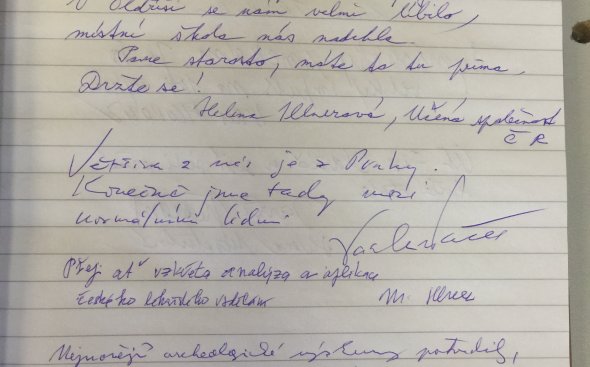 V Oldřiši se nám velmi líbilo,
místní škola nás nadchla.
Pane starosto, máte to tu príma.
Držte se!
Helena Illnerová, Učená společnost
ČR
Většina z nás je z Prahy.
Konečně jsme tady mezi
normálními lidmi
Přeji ať vzkvétá analýza a aplikace
českého
M. Illner
Nejnovější archeologické výzkumy potvrdily,